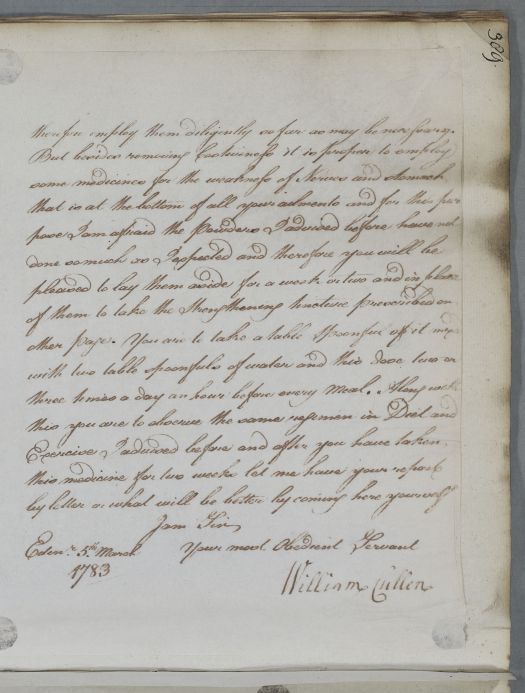 389.
therefore employ them diligently as far as may be necessary.
But besides removing Costiveness it is proper to employ
some medicines for the weakness of Nerves and stomach
that is at the bottom of all your ailments and for this pur
pose I am afraid the Powders I advised before have not
done so much as I expected and therefore you will be
pleased to lay them aside for a week or two and in place
of them to take the Strengthening tincture prescribed on
other page. You are to take a table Spoonful of it mixd
with two table spoonfuls of water and this dose two or
three times a day an hour before every Meal. Along with
this you are to observe the same regimen in Diet and
Exercise I advised before and after you have taken
this medicine for two weeks let me have your report
by letter or what will be better by coming here yourself
I am Sir
Edinr. 5th March Your most Obedient Servant
1783
William Cullen